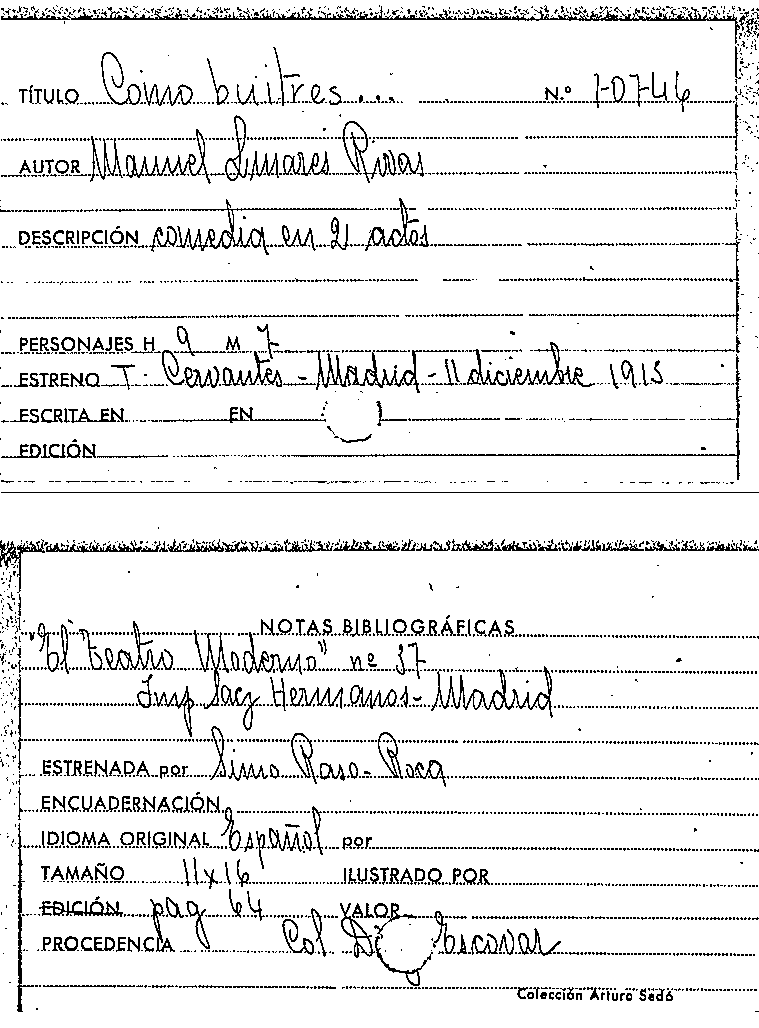 TÍTULO Como buitres... N.º 1-07-46
AUTOR Manuel Linares Rivas
DESCRIPCIÓN comedia en 2 actos
PERSONAJES H 9 M 7
ESTRENO T. Cervantes - Madrid - 11 diciembre 1915
ESCRITA EN EN
EDICIÓN
NOTAS BIBLIOGRÁFICAS
"El Teatro Moderno" nº 37
Imp Saez Hermanos - Madrid
ESTRENADA por Simo Raso - Roca
ENCUADERNACIÓN
IDIOMA ORIGINAL Español por
TAMAÑO 11x16 ILUSTRADO POR
EDICIÓN pag 64 VALOR
PROCEDENCIA Col Escovar
Colección Arturo Sedó